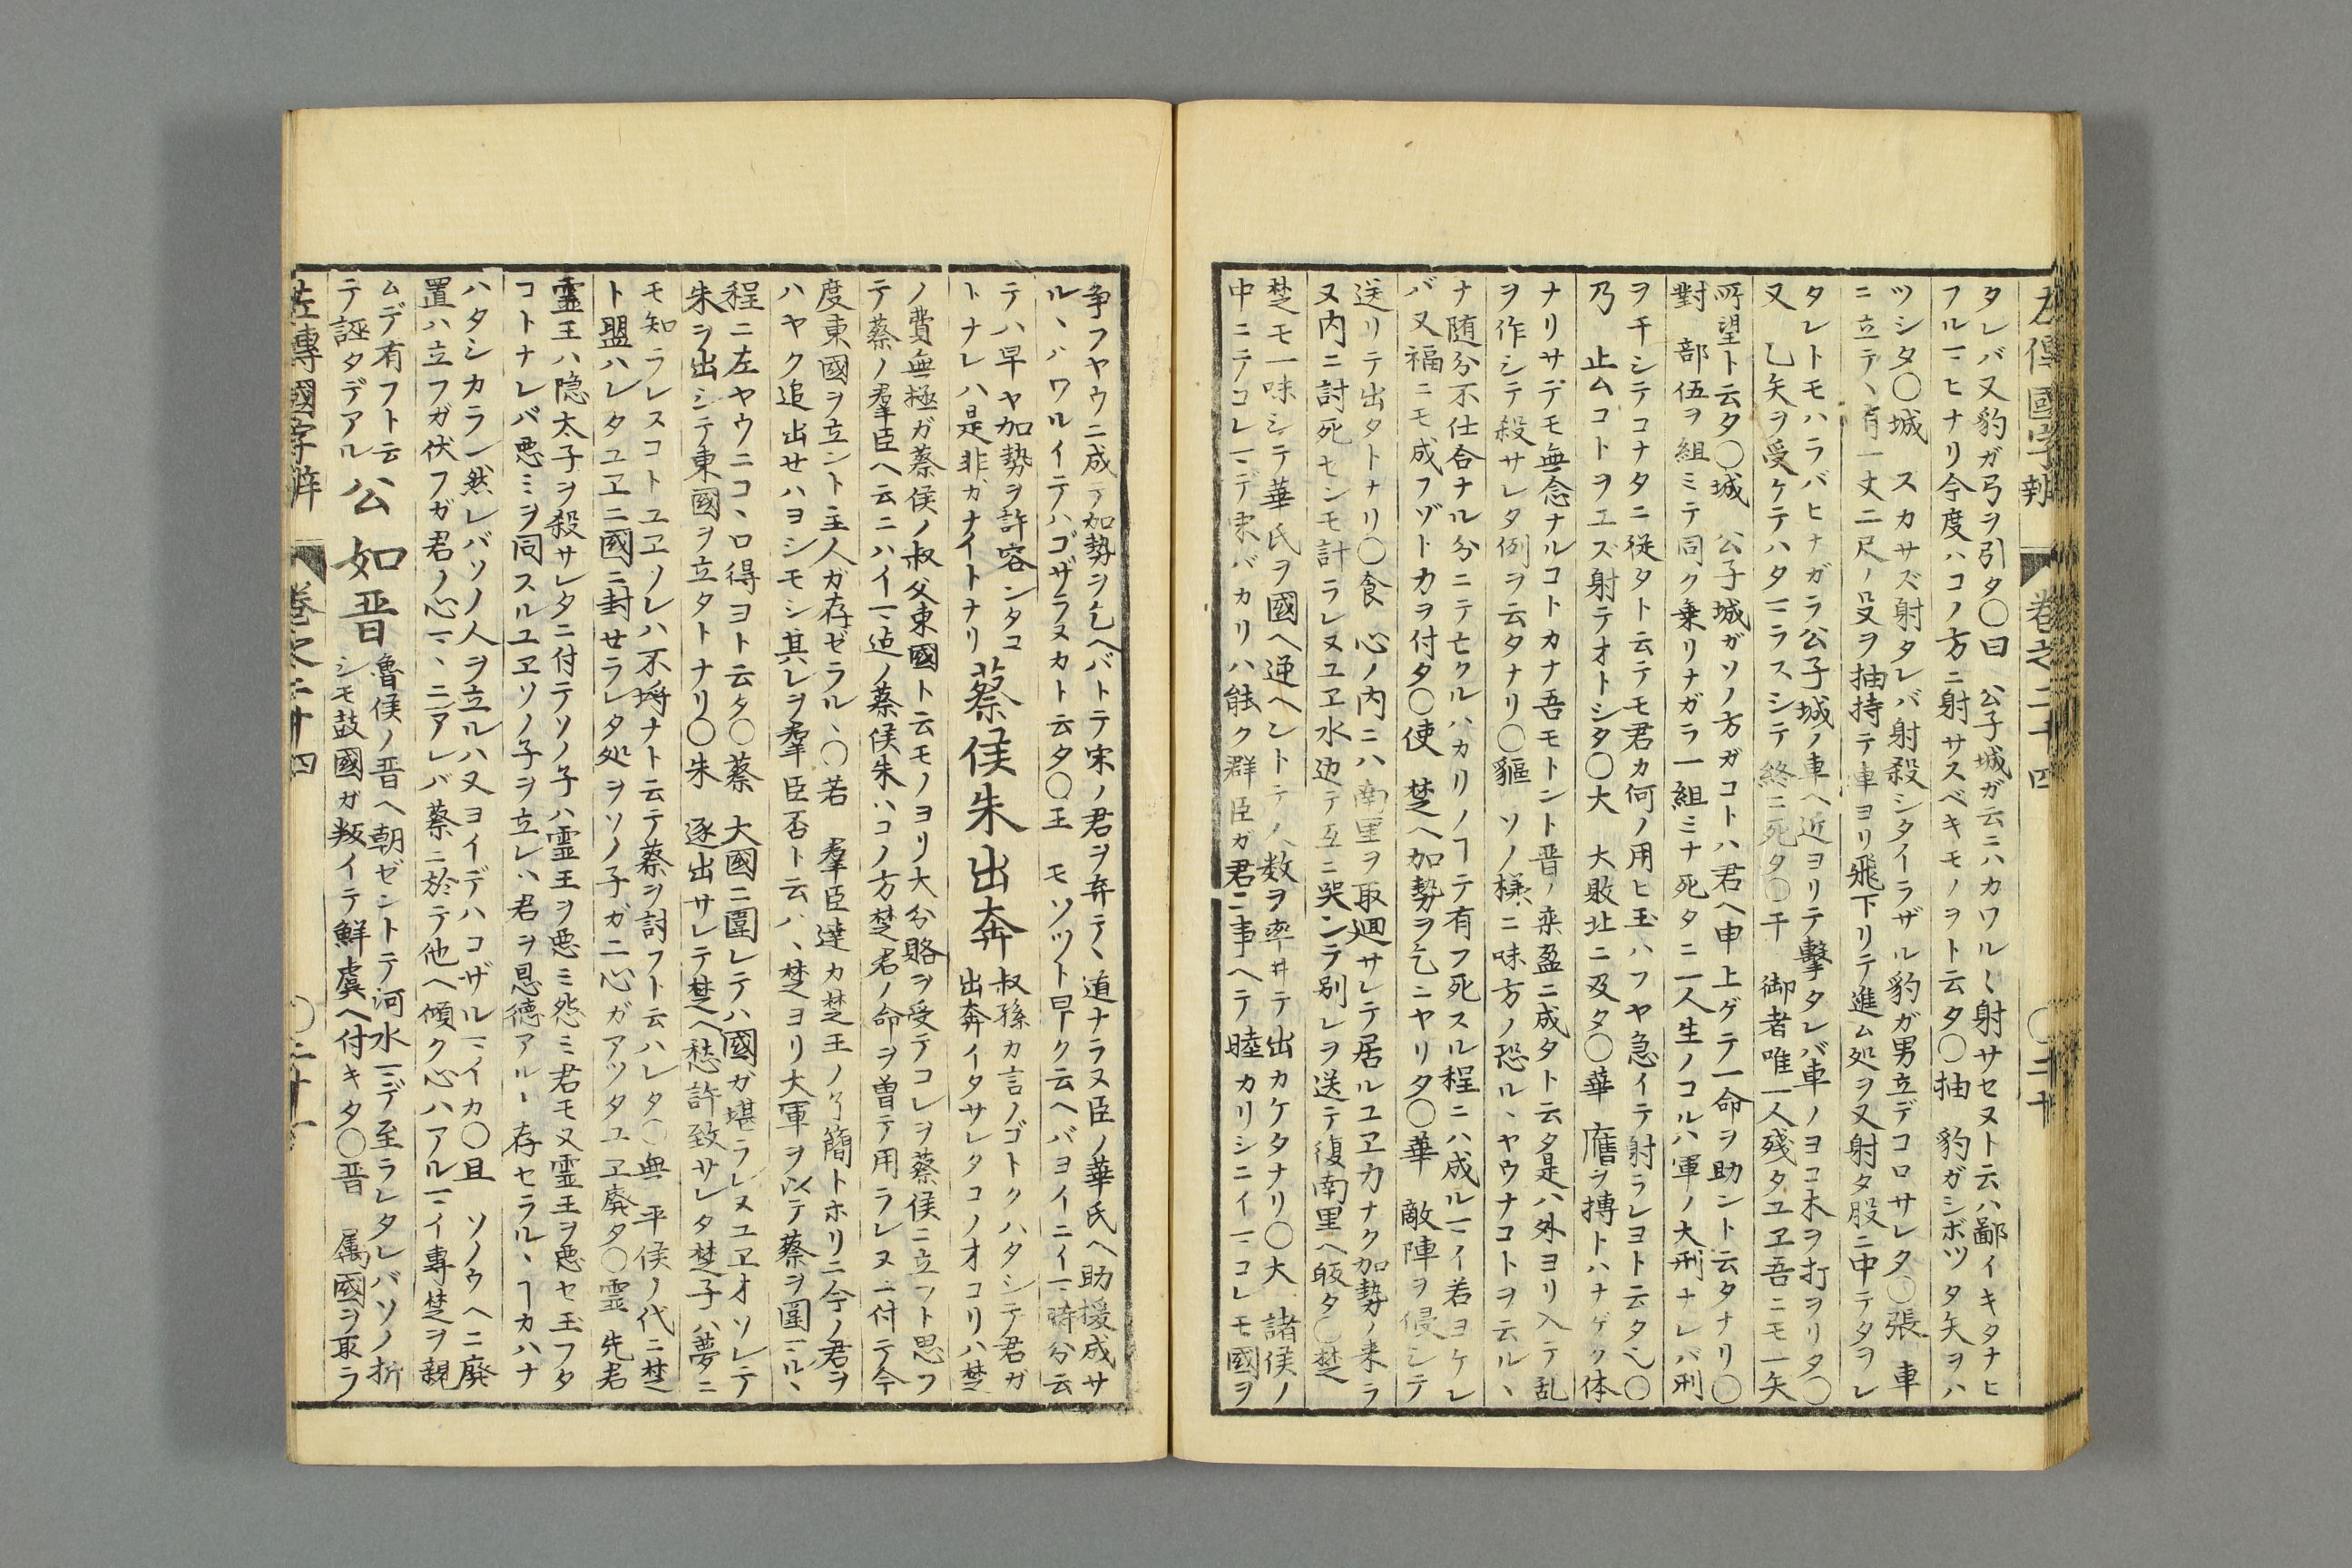 左傳國字辨 卷之二十四 〇二十
タレバ又豹ガ弓ヲ引タ〇曰 公子城ガ云ニハカワル〱射サセヌト云ハ鄙イキタナヒ
フルヿヒナリ今度ハコノ方ニ射サスベキモノヲト云タ〇抽 豹ガシボツタ矢ヲハ
ツシタ〇城 スカサズ射タレバ射殺シタイラザル豹ガ男立デコロサレタ〇張 車
ニ立テヽ有一丈二尺ノ殳ヲ抽持テ車ヨリ飛下リテ進ム処ヲ又射タ股ニ中テタヲレ
タレトモハラバヒナガラ公子城ノ車ヘ近ヨリテ擊タレバ車ノヨコ木ヲ打ヲリタ〇
又 乙矢ヲ受ケテハタマラスシテ終ニ死タ〇干 御者唯一人殘タユヱ吾ニモ一矢
所望ト云タ〇城 公子城ガソノ方ガコトハ君ヘ申上ゲテ一命ヲ助ント云タナリ〇
對 部伍ヲ組ミテ同ク乗リナガラ一組ミナ死タニ一人生ノコルハ軍ノ大刑ナレバ刑
ヲ干シテコナタニ従タト云テモ君カ何ノ用ヒ玉ハフヤ急イテ射ラレヨト云タ〇
乃 止ムコトヲエズ射テオトシタ〇大 大敗北ニ及タ〇華 膺ヲ搏トハナゲク体
ナリサテモ無念ナルコトカナ吾モトント晋ノ栾盈ニ成タト云タ是ハ外ヨリ入テ乱
ヲ作シテ殺サレタ例ヲ云タナリ〇貙 ソノ様ニ味方ノ恐ルヽヤウナコトヲ云ルヽ
ナ随分不仕合ナル分ニテ亡クルハカリノヿテ有フ死スル程ニハ成ルマイ若ヨケレ
バ又福ニモ成フゾト力ヲ付タ〇使 楚ヘ加勢ヲ乞ニヤリタ〇華 敵陣ヲ侵シテ
送リテ出タトナリ〇食 心ノ内ニハ南里ヲ取廻サレテ居ルユヱ力ナク加勢ノ来ラ
ヌ内ニ討死センモ計ラレヌユヱ水边テ互ニ哭ンテ别レヲ送テ復南里ヘ皈タ〇楚
楚モ一味シテ華氏ヲ國ヘ逆ヘントテノ数ヲ率ヰテ出カケタナリ〇大 諸侯ノ
中ニテコレマデ宋バカリハ能ク群臣ガ君ニ事ヘテ睦カリシニイマコレモ國ヲ
争フヤウニ成テ加勢ヲ乞ヘバトテ宋ノ君ヲ弃テヽ道ナラヌ臣ノ華氏ヘ助援成サ
ルヽハワルイテハゴザラヌカト云タ〇王 モソツト早ク云ヘバヨイニイマ時分云
テハ早ヤ加勢ヲ許容シタコ
トナレハ是非カナイトナリ
蔡侯朱出奔
叔孫カ言ノゴトクハタシテ君ガ
出奔イタサレタコノオコリハ楚
ノ費無極ガ蔡侯ノ叔父東國ト云モノヨリ大分賂ヲ受テコレヲ蔡侯ニ立フト思フ
テ蔡ノ羣臣ヘ云ニハイマ迠ノ蔡侯朱ハコノ方楚君ノ命ヲ曽テ用ラレヌニ付テ今
度東國ヲ立ント主人ガ存ゼラルヽ〇若 羣臣達カ楚王ノ了簡トホリニ今ノ君ヲ
ハヤク追出セハヨシモシ其レヲ羣臣否ト云ハヽ楚ヨリ大軍ヲ以テ蔡ヲ圍マルヽ
程ニ左ヤウニコヽロ得ヨト云タ〇蔡 大國ニ圍レテハ國ガ堪ラレヌユヱオソレテ
朱ヲ出シテ東國ヲ立タトナリ〇朱 逐出サレテ楚ヘ愁許致サレタ楚子ハ夢ニ
モ知ラレスコトユヱソレハ不埒ナト云テ蔡ヲ討フト云ハレタ〇無 平侯ノ代ニ楚
ト盟ハレタユヱニ國ニ封せラレタ処ヲソノ子ガ二心ガアツタユヱ廃タ〇霊 先君
霊王ハ隐太子ヲ殺サレタニ付テソノ子ハ霊王ヲ悪ミ怨ミ君モ又霊王ヲ悪セ玉フタ
コトナレバ悪ミヲ同スルユヱソノ子ヲ立レハ君ヲ恩德アルヽ存セラルヽヿカハナ
ハタシカラン然レバソノ人ヲ立ルハ又ヨイデハコザルマイカ〇且 ソノウヘニ廃
置ハ立フガ伏フガ君ノ心マヽニアレバ蔡ニ於テ他ヘ傾ク心ハアルマイ專楚ヲ親
ムデ有フト云
テ誣タデアル
公如晋
魯侯ノ晋ヘ朝ゼントテ河水マデ至ラレタレバソノ折
シモ鼓國ガ叛イテ鮮虞ヘ付キタ〇晋 属國ヲ取ラ
左傳國字辨 卷之二十四 〇二十一